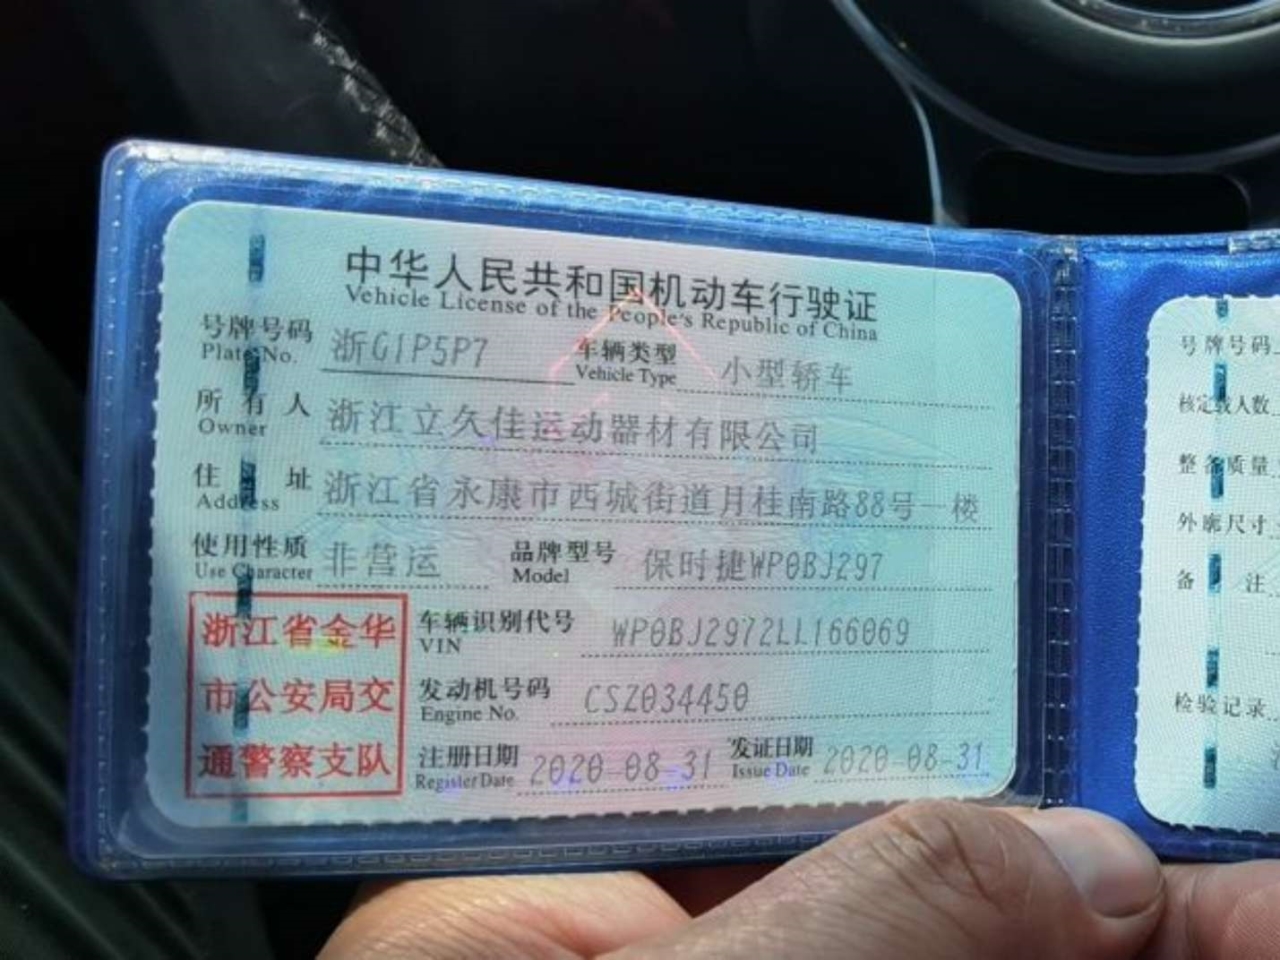 中华人民共和国机动车行驶证
Vehicle License of the People's Republic of China
号牌号码 浙G1P5P7 车辆类型 小型轿车
Plate No. Vehicle Type
所有人 浙江立久佳运动器材有限公司
Owner
住址 浙江省永康市西城街道月桂南路88号一楼
Address
使用性质 非营运 品牌型号 保时捷WP0BJ297
Use Character Model
浙江省金华
市公安局交
通警察支队
车辆识别代号 WP0BJ2972LL166069
VIN
发动机号码 CSZ034450
Engine No.
注册日期 2020-08-31 发证日期 2020-08-31
Register Date Issue Date
号牌号码
核定载人数
整备质量
外廓尺寸
备注
检验记录